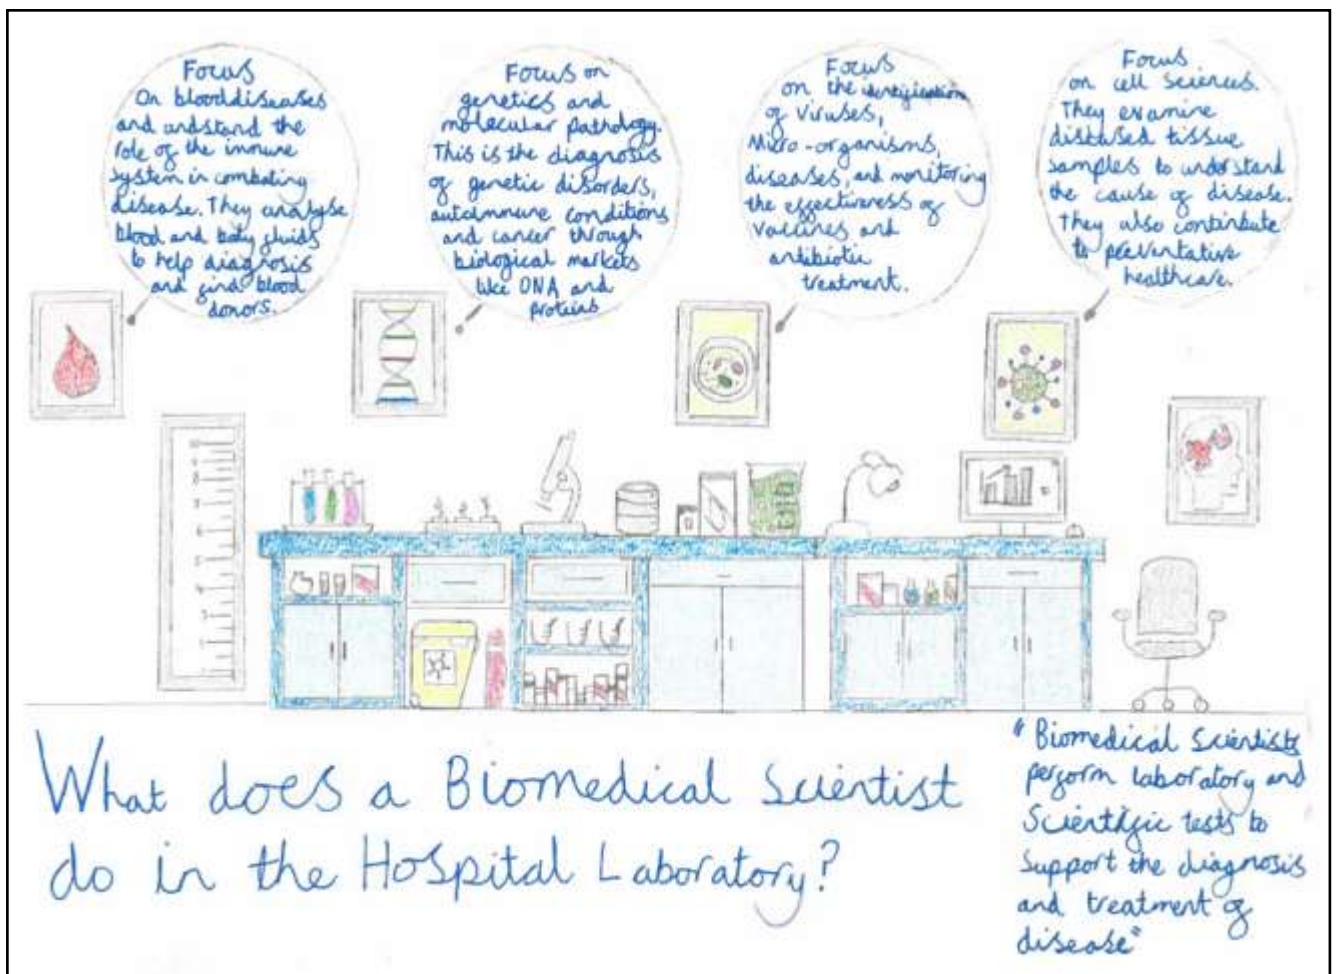 Focus
On blood diseases
and undstand the
role of the immune
system in combating
disease. They analyse
blood and body fluids
to help diagnosis
and find blood
donors.
Focus on
genetics and
molecular pathology.
This is the diagnosis
of genetic disorders,
autoimmune conditions
and cancer through
biological markets
like DNA and
proteins
Focus
on the identification
of Viruses,
Micro-organisms,
diseases, and monitoring
the effectiveness of
Vaccines and
antibiotic
treatment.
Focus
on cell Sciences.
They examine
diseased tissue
samples to understand
the cause of disease.
They also contribute
to preventative
healthcare.
What does a Biomedical Scientist
do in the Hospital Laboratory?
"Biomedical Scientists
perform laboratory and
Scientific tests to
Support the diagnosis
and treatment of
disease"